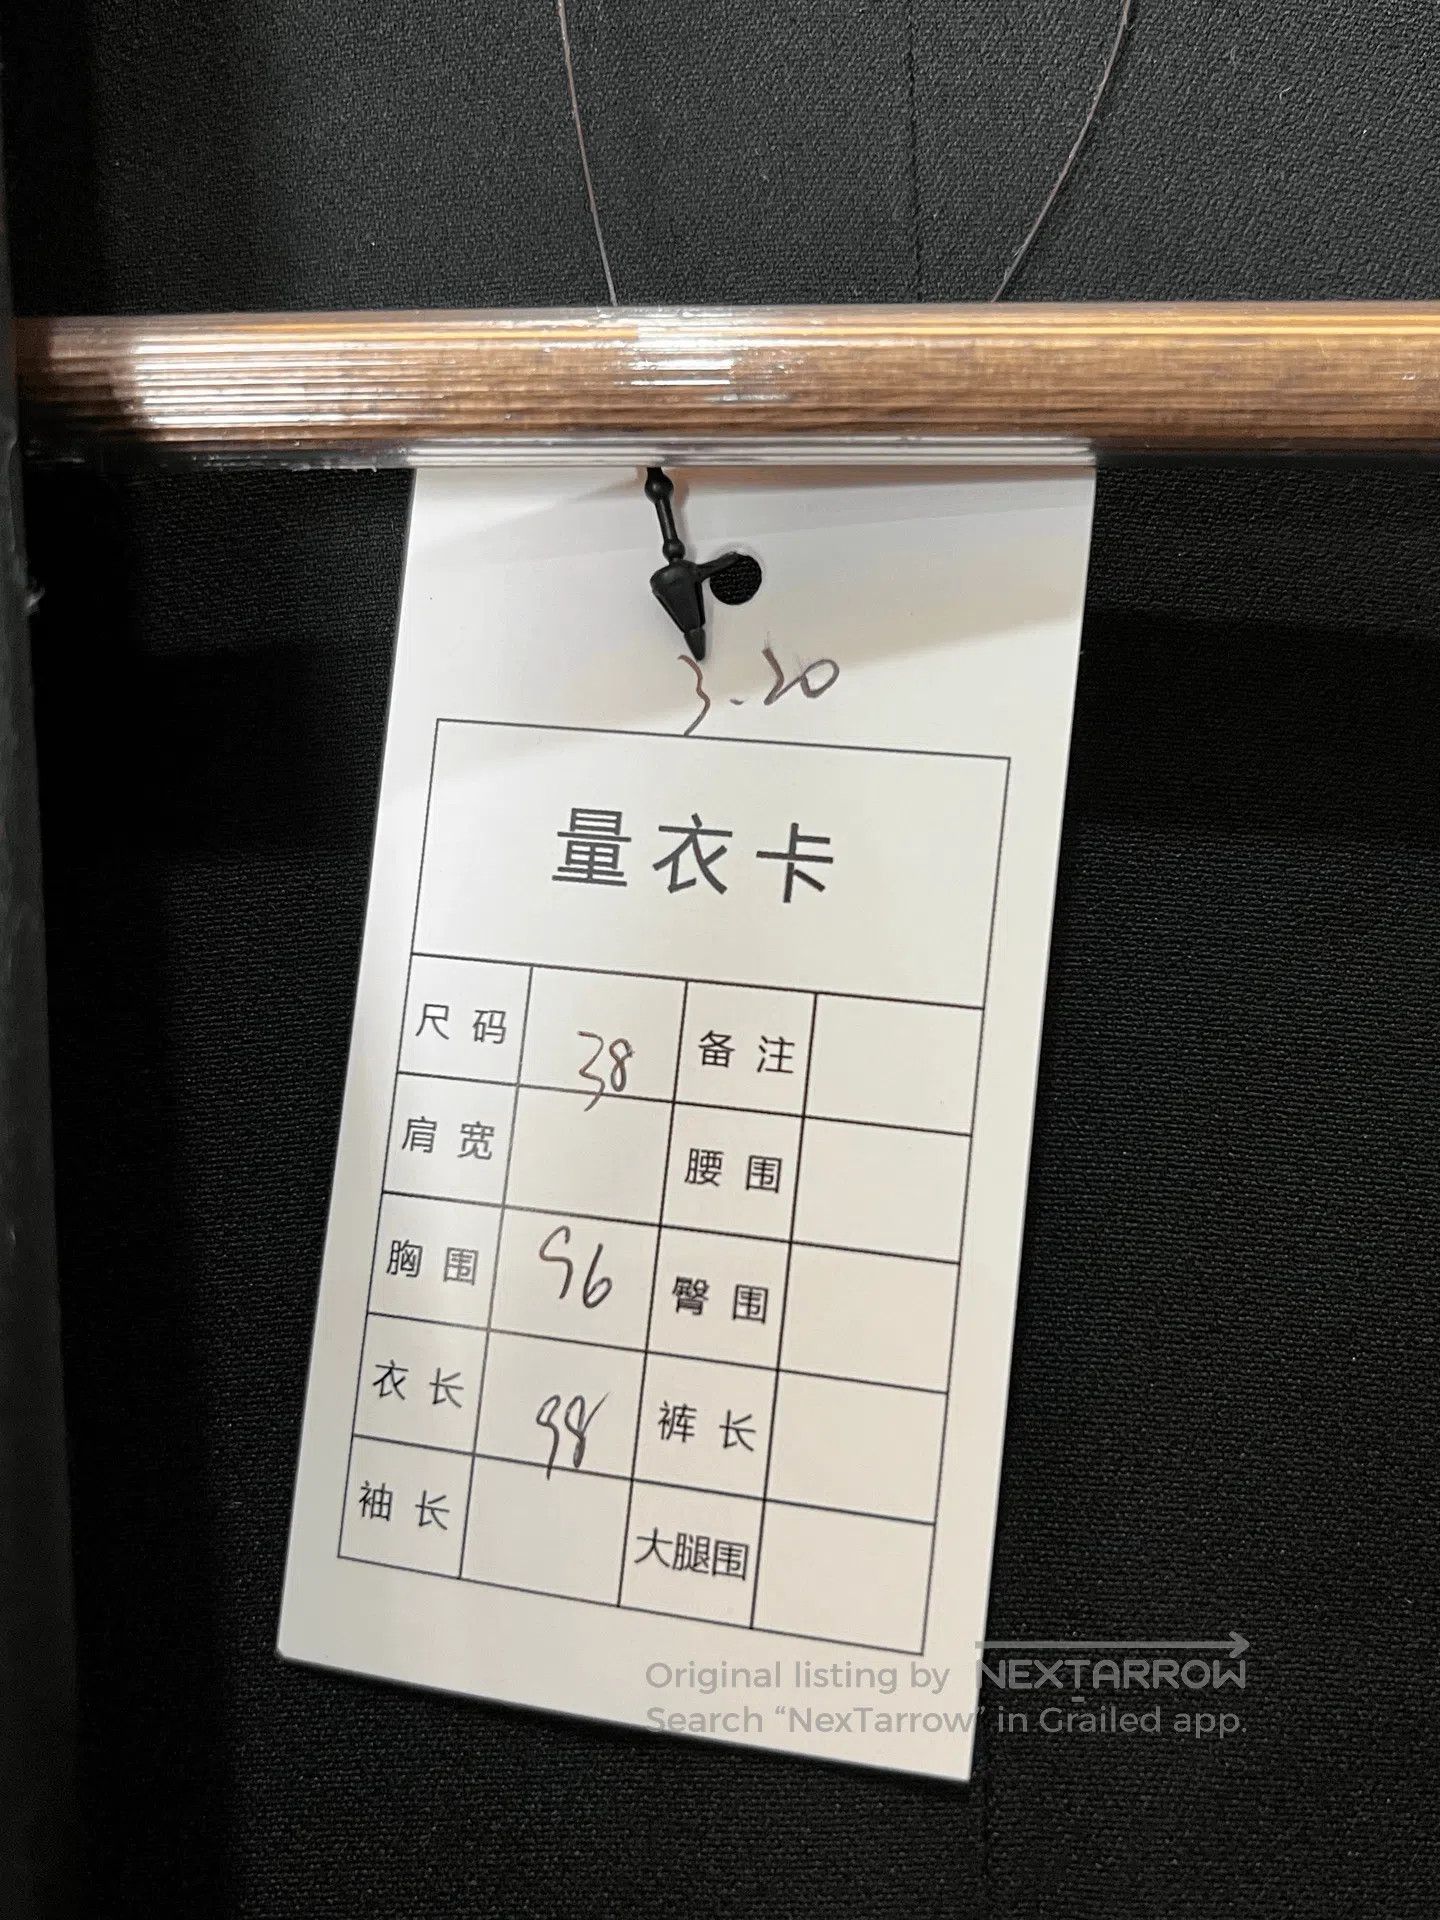 3.20
量衣卡
尺码 38 备注
肩宽 腰围
胸围 96 臀围
衣长 98 裤长
袖长 大腿围
Original listing by NEXTARROW
Search “NexTarrow” in Grailed app.